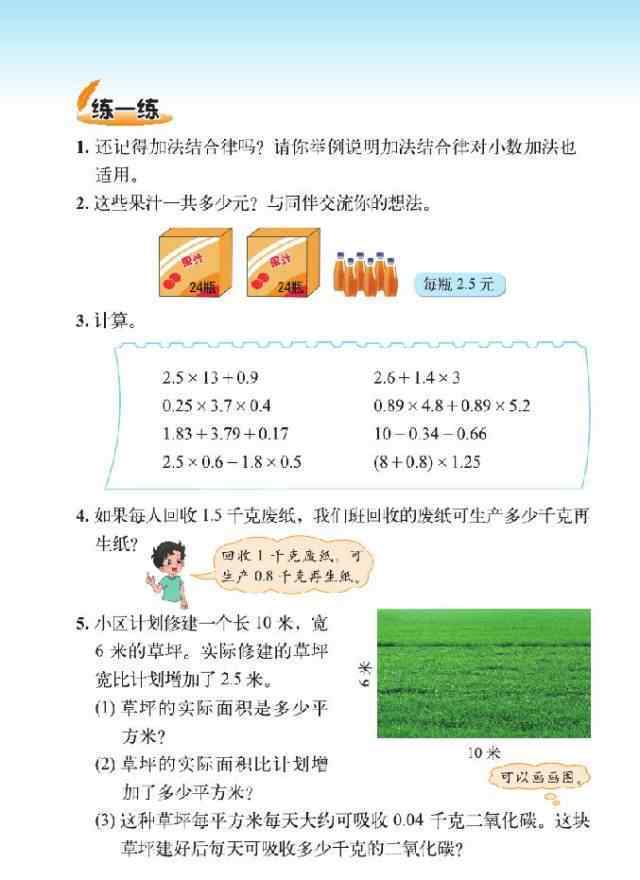 练一练
1. 还记得加法结合律吗？请你举例说明加法结合律对小数加法也
适用。
2. 这些果汁一共多少元？与同伴交流你的想法。
果汁
24瓶
果汁
24瓶
每瓶 2.5 元
3. 计算。
2.5×13+0.9
2.6+1.4×3
0.25×3.7×0.4
0.89×4.8+0.89×5.2
1.83+3.79+0.17
10-0.34-0.66
2.5×0.6-1.8×0.5
(8+0.8)×1.25
4. 如果每人回收 1.5 千克废纸，我们班回收的废纸可生产多少千克再
生纸？
回收 1 千克废纸，可
生产 0.8 千克再生纸。
5. 小区计划修建一个长 10 米，宽
6 米的草坪。实际修建的草坪
宽比计划增加了 2.5 米。
(1) 草坪的实际面积是多少平
方米？
(2) 草坪的实际面积比计划增
加了多少平方米？
6 米
10 米
可以画画图。
(3) 这种草坪每平方米每天大约可吸收 0.04 千克二氧化碳。这块
草坪建好后每天可吸收多少千克的二氧化碳？